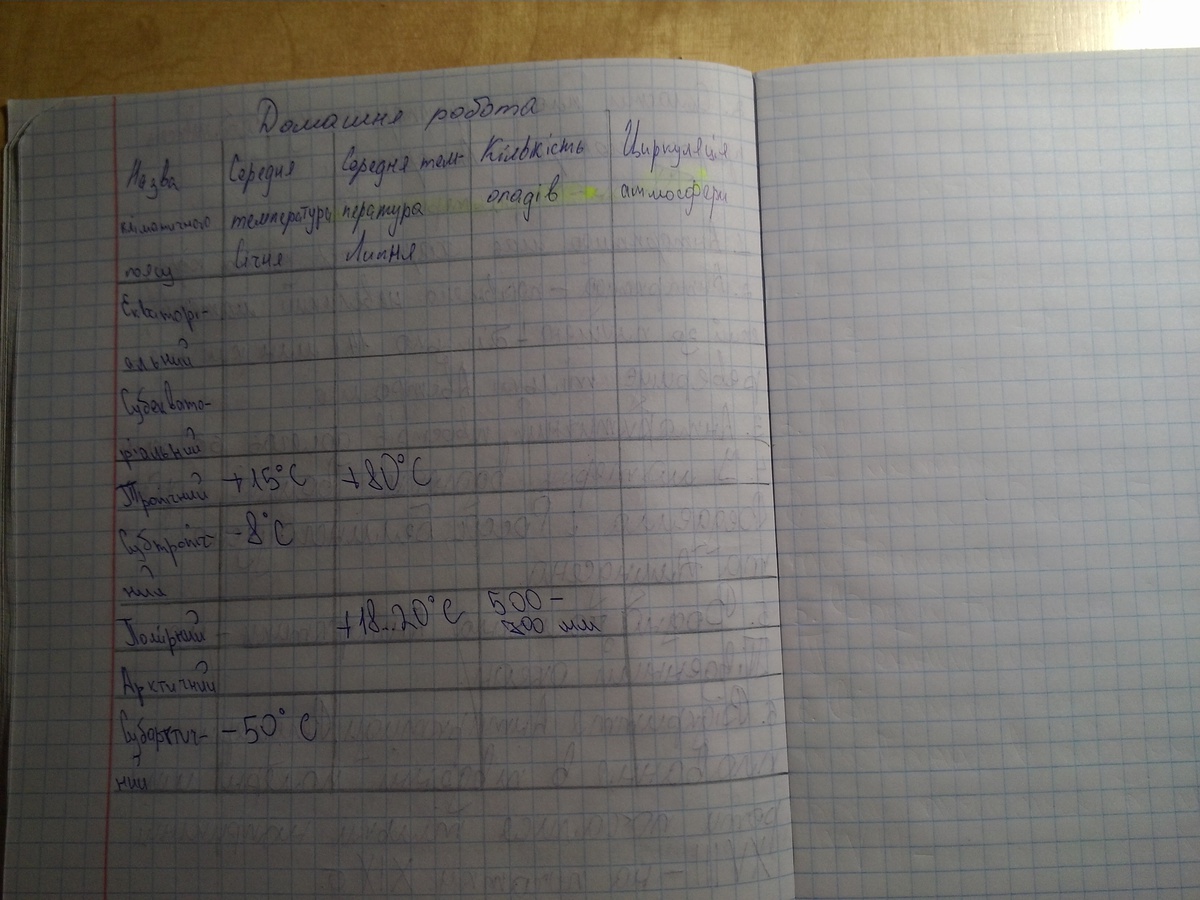 Домашня робота
Назва
кліматичного
поясу
Середня
температура
січня
Середня тем-
пература
Липня
Кількість
опадів
Циркуляція
атмосфери
Екваторі-
альний
Субеквато-
ріальний
Тропічний +15°C +80°C
Субтропіч- -8°C
ний
Помірний +18..20°C 500-
700 мм
Арктичний
Субарктич- -50°C
ний